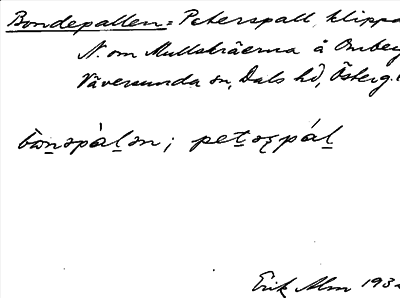 Bondepallen = Peterspall, klippa
N. om Mullskräerna å Omberg
Väversunda sn, Dals hd, Österg.
bωnəpàlən; petəʂpál
Erik Alm 193